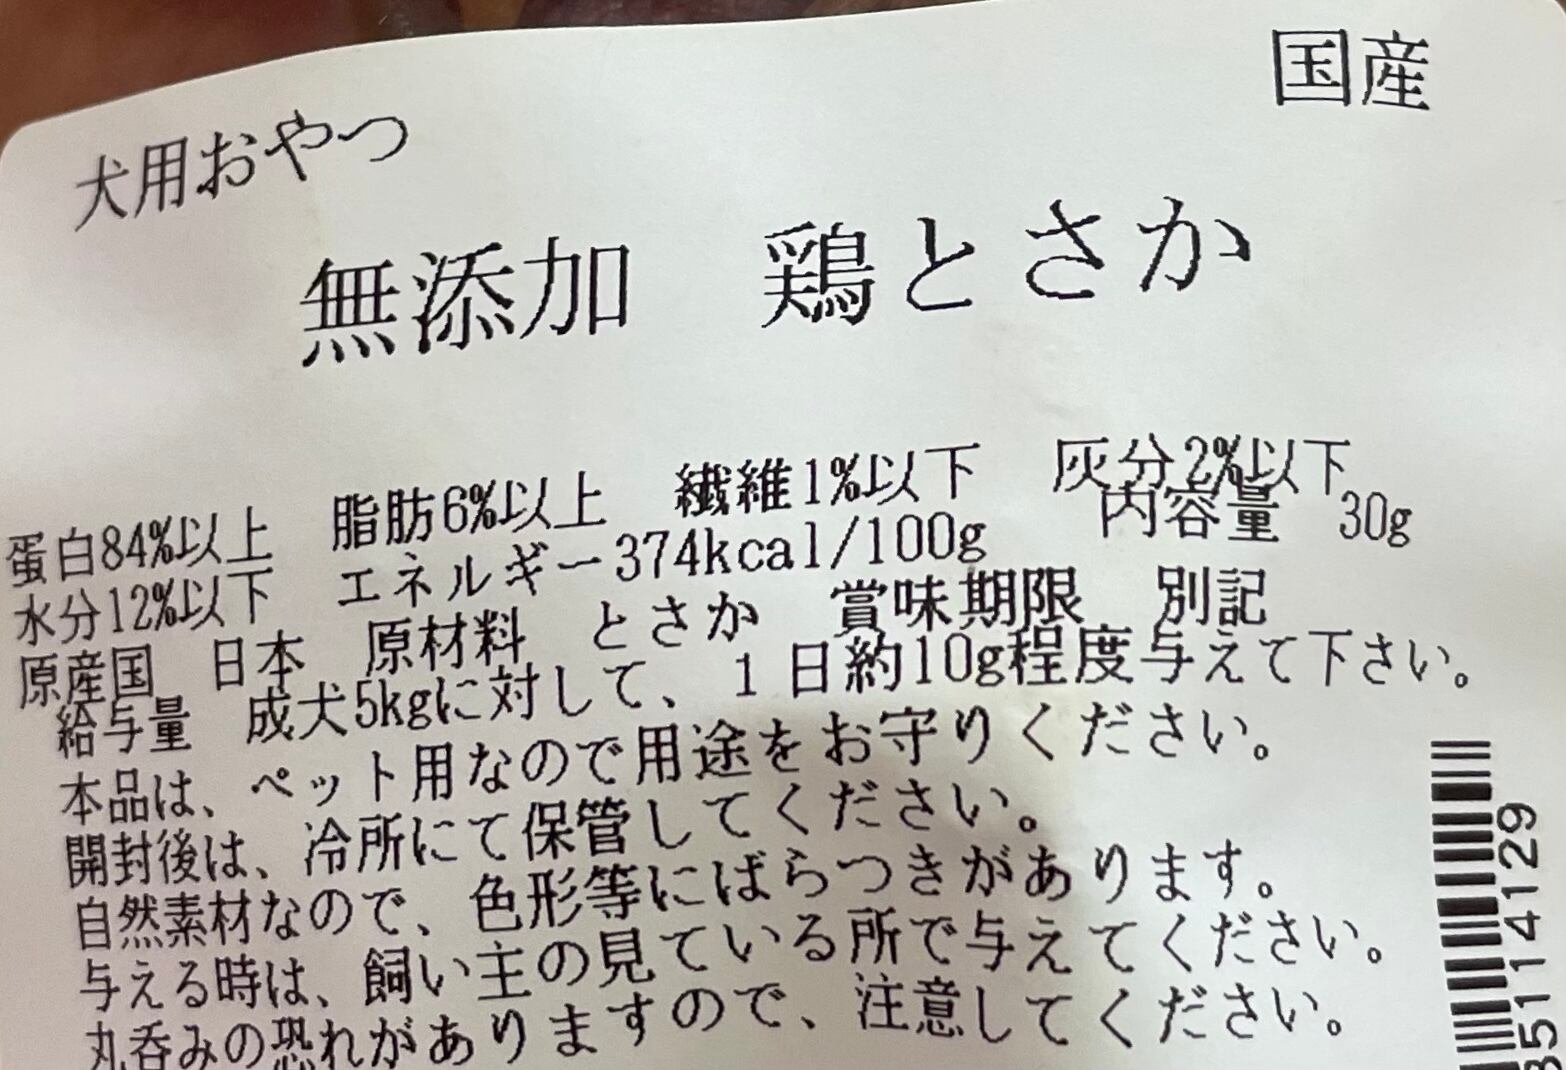 国産
犬用おやつ
無添加　鶏とさか
蛋白84%以上　脂肪6%以上　繊維1%以下　灰分2%以下
水分12%以下　エネルギー374kcal/100g　内容量　30g
原産国　日本　原材料　とさか　賞味期限　別記
給与量　成犬5kgに対して、1日約10g程度与えて下さい。
本品は、ペット用なので用途をお守りください。
開封後は、冷所にて保管してください。
自然素材なので、色形等にばらつきがあります。
与える時は、飼い主の見ている所で与えてください。
丸呑みの恐れがありますので、注意してください。
35114129